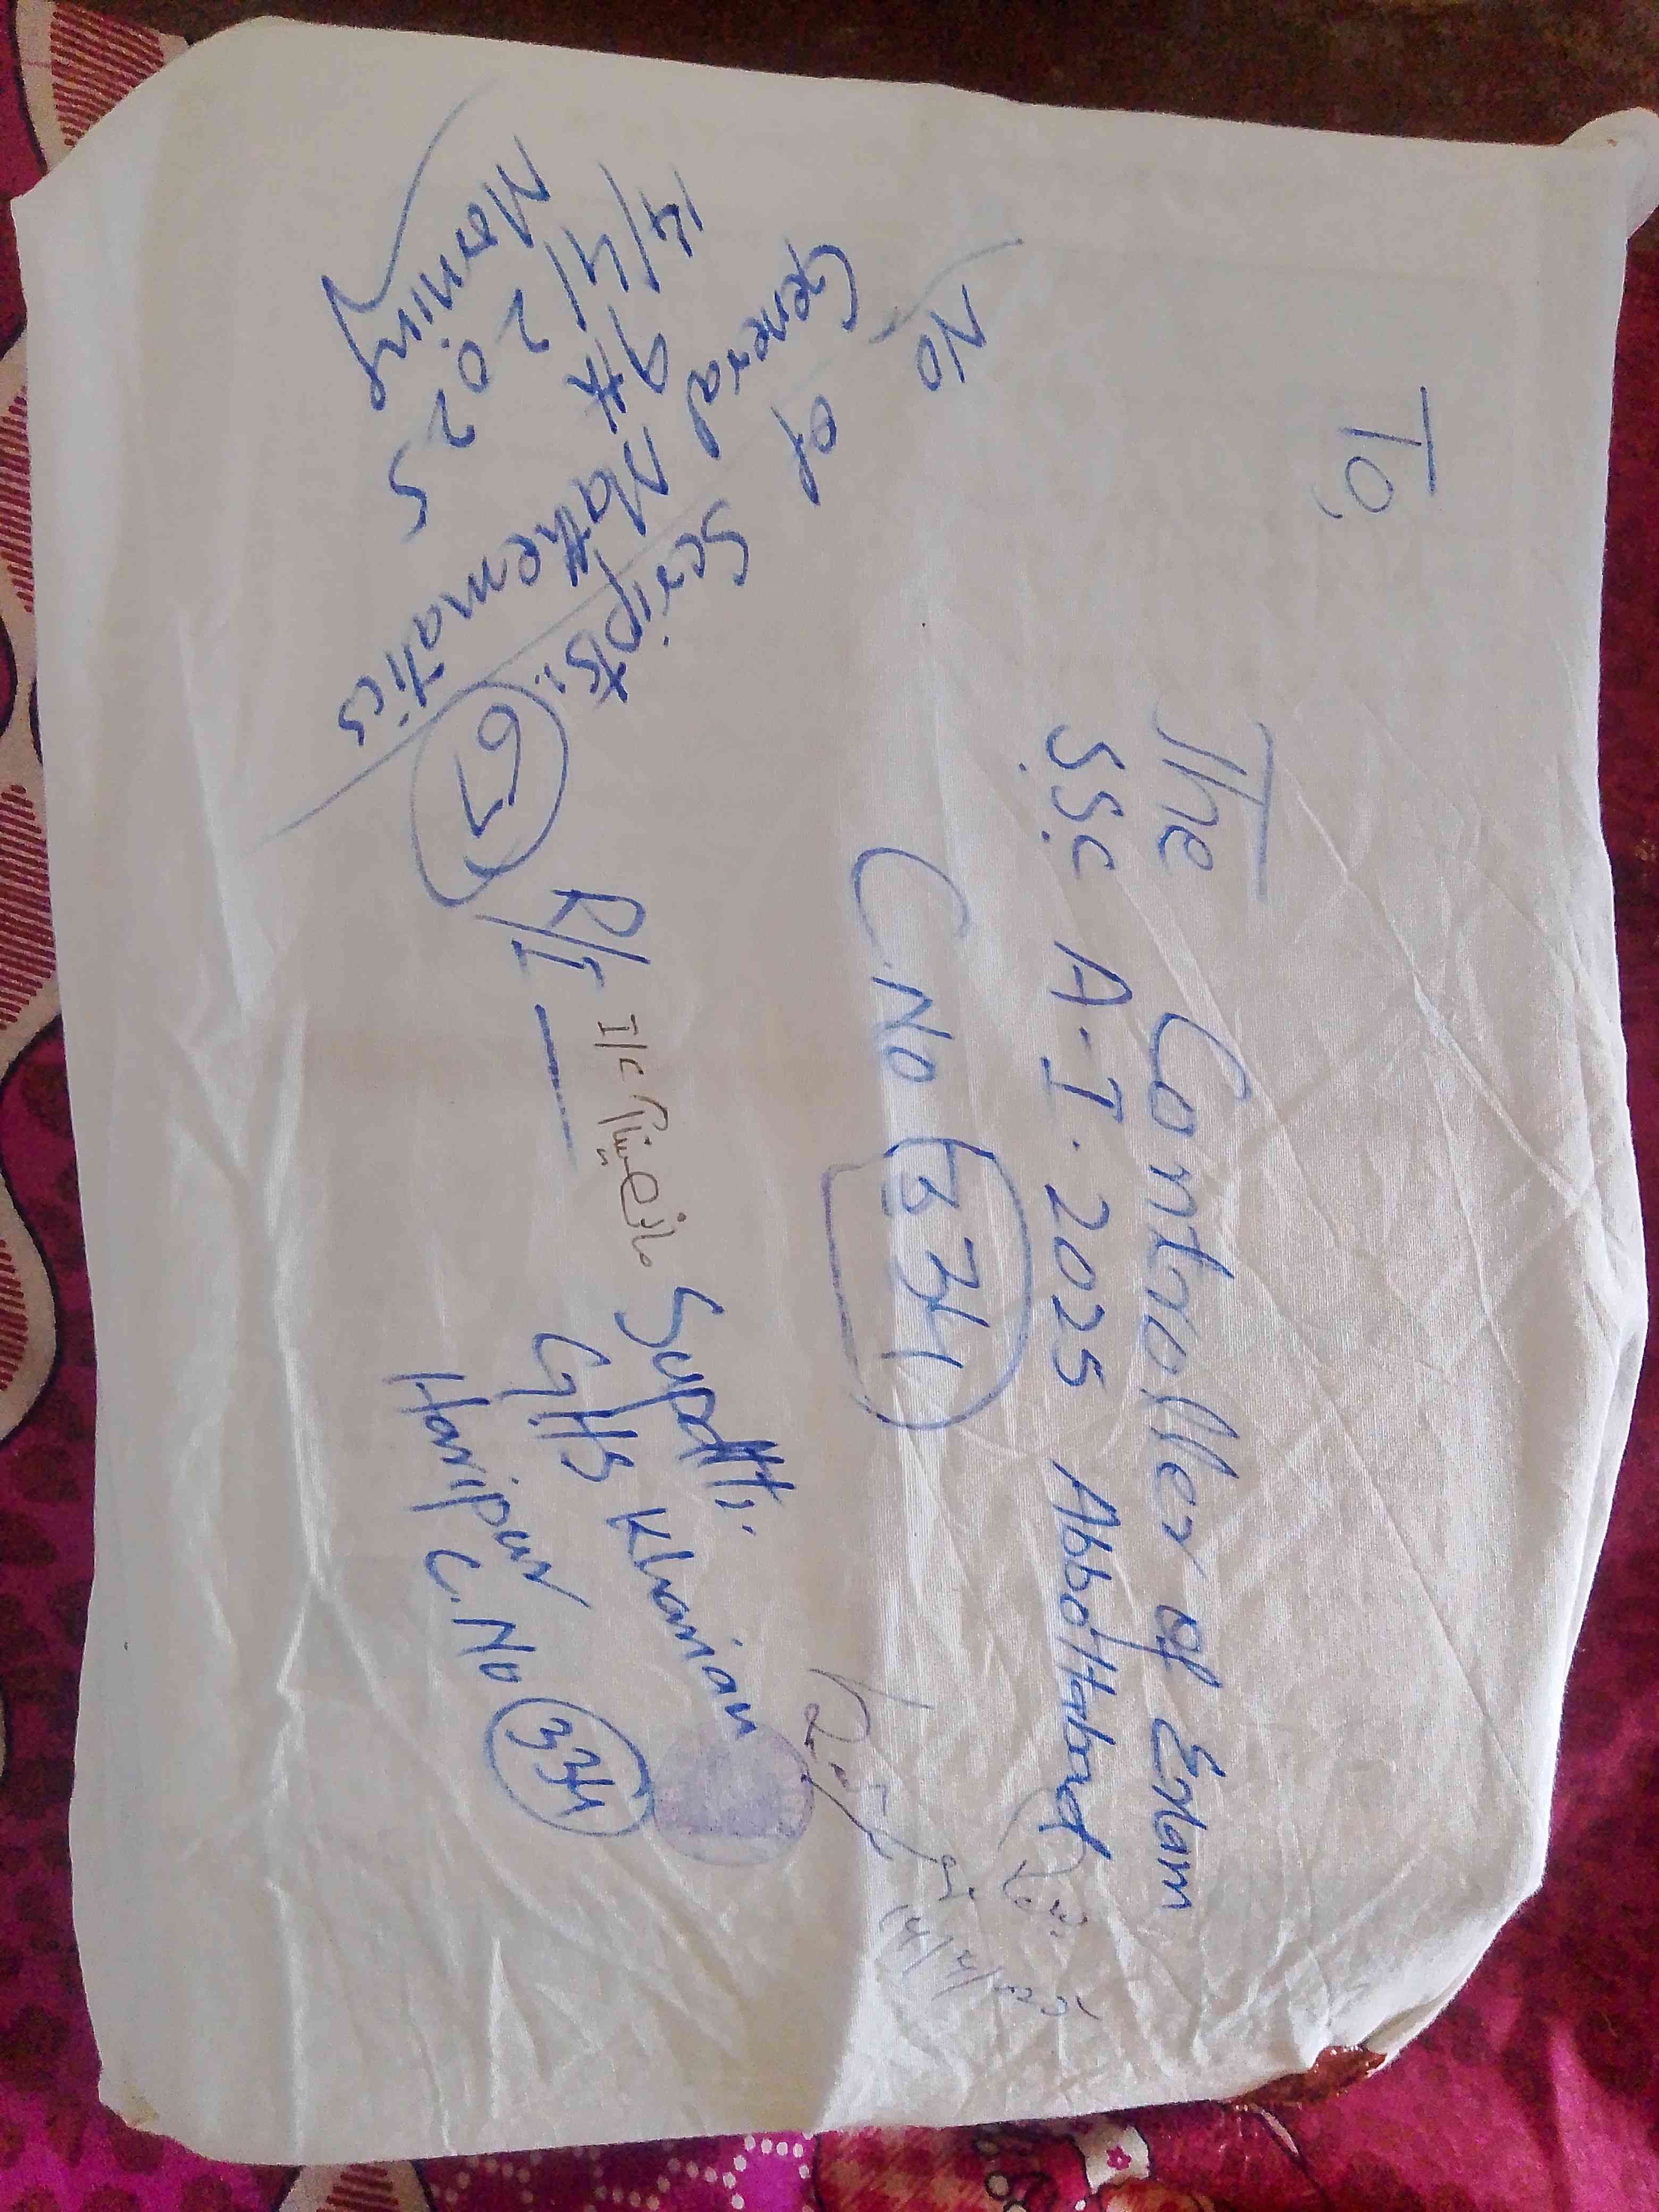 To,
The Controller of Exam
SSC A-I. 2025 Abbottabad
C.No 334
No of Scripts:
General Mathematics
9th
14/4/2025
Morning
R/I
I/C
Supdtt:
GHS Kharian
Haripur
C.No 334
14/4/2025